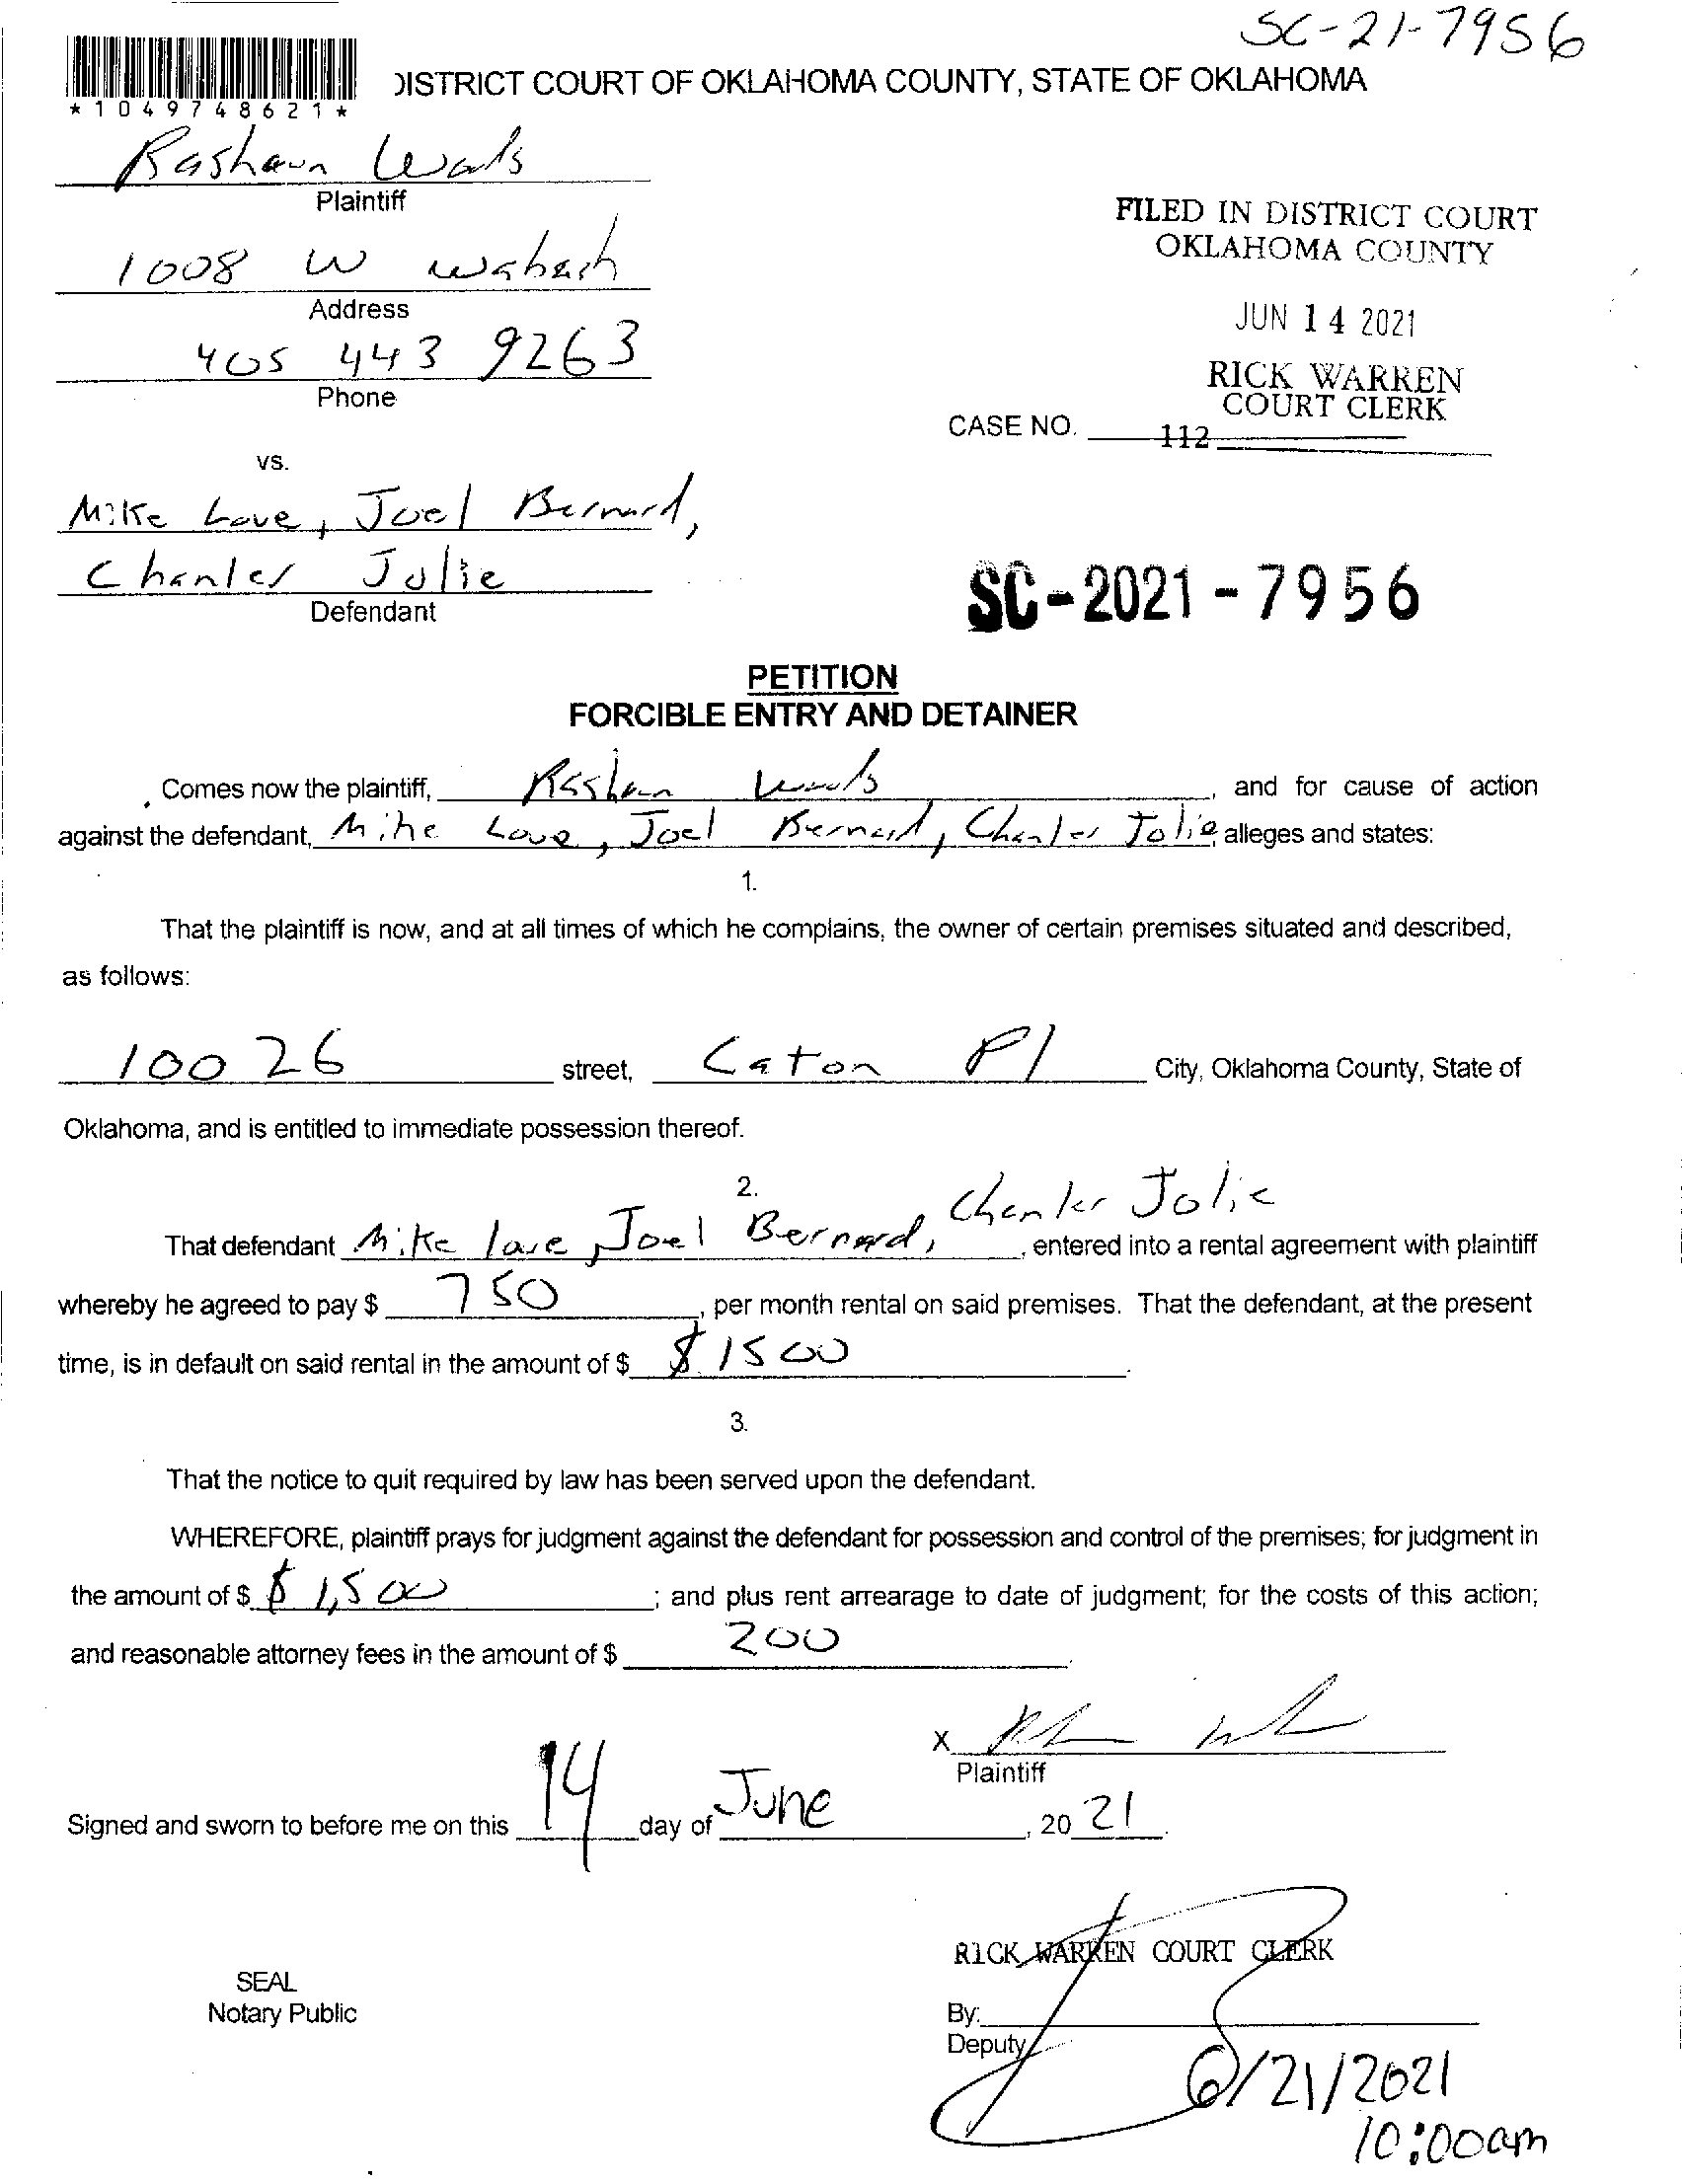 SC-21-7956
DISTRICT COURT OF OKLAHOMA COUNTY, STATE OF OKLAHOMA
*1049748621*
Rashaun
Plaintiff
1008 W Wabash
Address
405 443 9263
Phone
FILED IN DISTRICT COURT
OKLAHOMA COUNTY
JUN 14 2021
RICK WARREN
COURT CLERK
CASE NO.
112
vs.
Mike Love, Joel Bernard,
Chanler Jolie
Defendant
SC-2021-7956
PETITION
FORCIBLE ENTRY AND DETAINER
Comes now the plaintiff, , and for cause of action
against the defendant, Mike Love, Joel Bernard, Chanler Jolie, alleges and states:
1.
That the plaintiff is now, and at all times of which he complains, the owner of certain premises situated and described,
as follows:
10026 street, Caton Pl City, Oklahoma County, State of
Oklahoma, and is entitled to immediate possession thereof.
2.
That defendant Mike love, Joel Bernard, Chanler Jolie, entered into a rental agreement with plaintiff
whereby he agreed to pay $ 750, per month rental on said premises. That the defendant, at the present
time, is in default on said rental in the amount of $ $1500.
3.
That the notice to quit required by law has been served upon the defendant.
WHEREFORE, plaintiff prays for judgment against the defendant for possession and control of the premises; for judgment in
the amount of $ $1,500; and plus rent arrearage to date of judgment; for the costs of this action;
and reasonable attorney fees in the amount of $ 200.
X
Plaintiff
Signed and sworn to before me on this 14 day of June, 20 21.
RICK WARREN COURT CLERK
SEAL
Notary Public
By:
Deputy
6/21/2021
10:00am